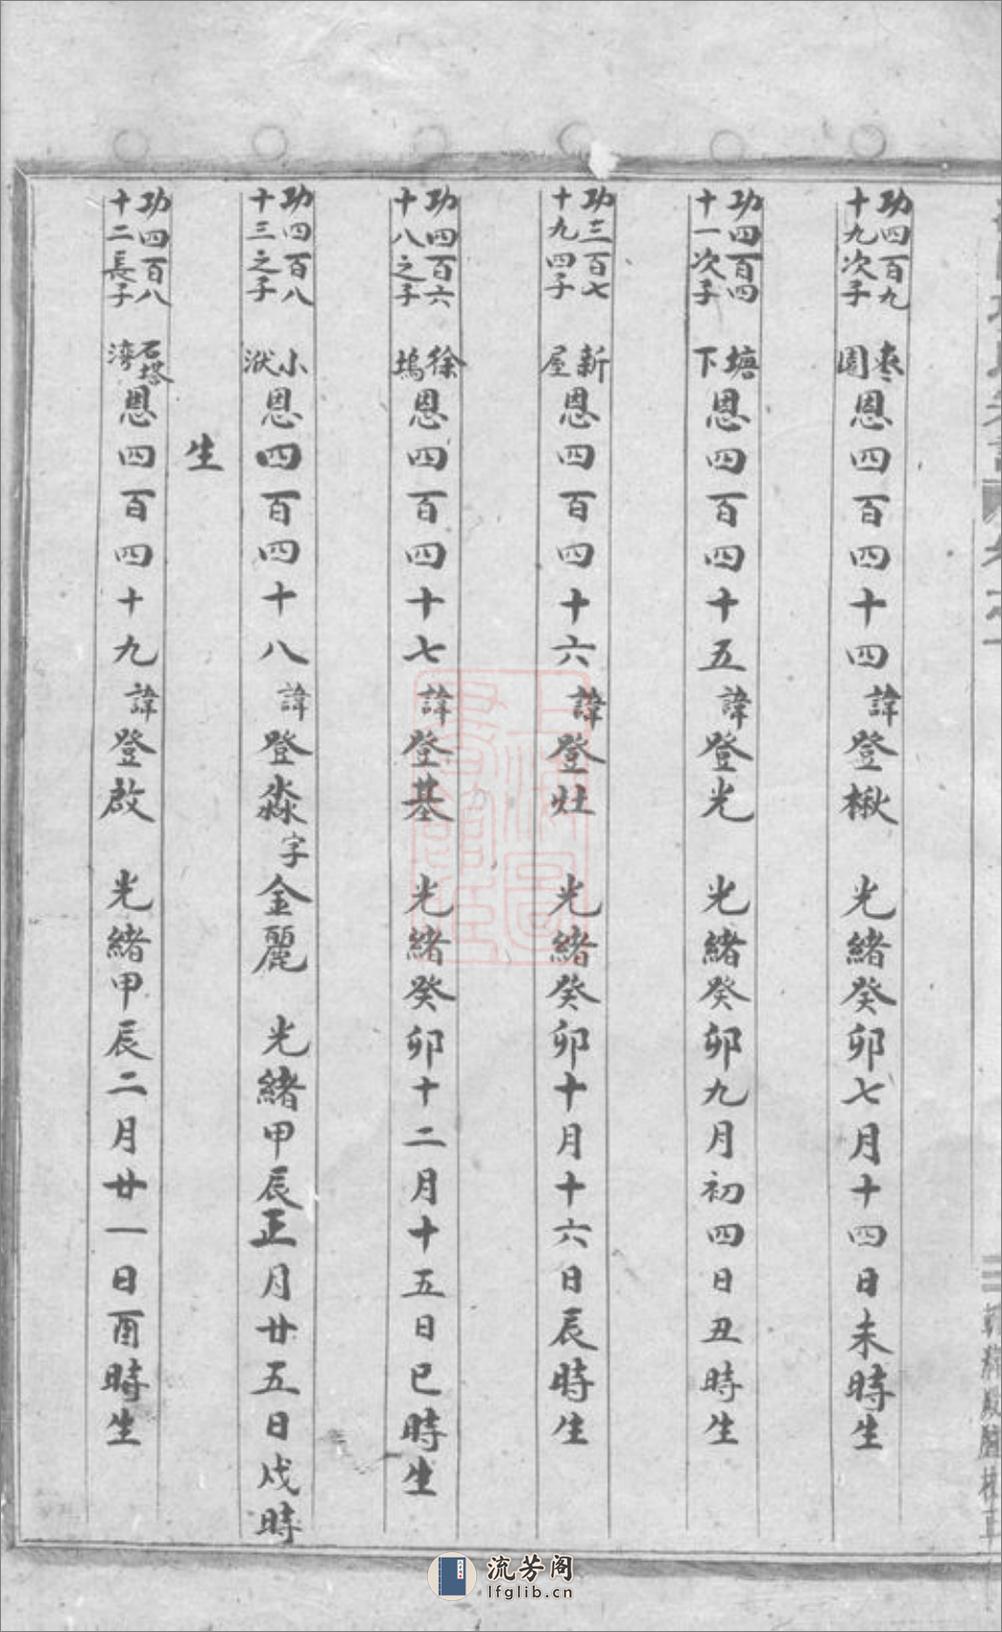 功四百九十九次子 棗園 恩四百四十四 諱登楸 光緒癸卯七月十四日未時生
功四百四十一次子 塘下 恩四百四十五 諱登光 光緒癸卯九月初四日丑時生
功三百七十九四子 新屋 恩四百四十六 諱登灶 光緒癸卯十月十六日辰時生
功四百六十八之子 徐塢 恩四百四十七 諱登基 光緒癸卯十二月十五日巳時生
功四百八十三之子 小洑 恩四百四十八 諱登淼 字金麗 光緒甲辰正月廿五日戌時
生
功四百八十二長子 石塔灣 恩四百四十九 諱登啟 光緒甲辰二月廿一日酉時生
流芳阁
lfglib.cn